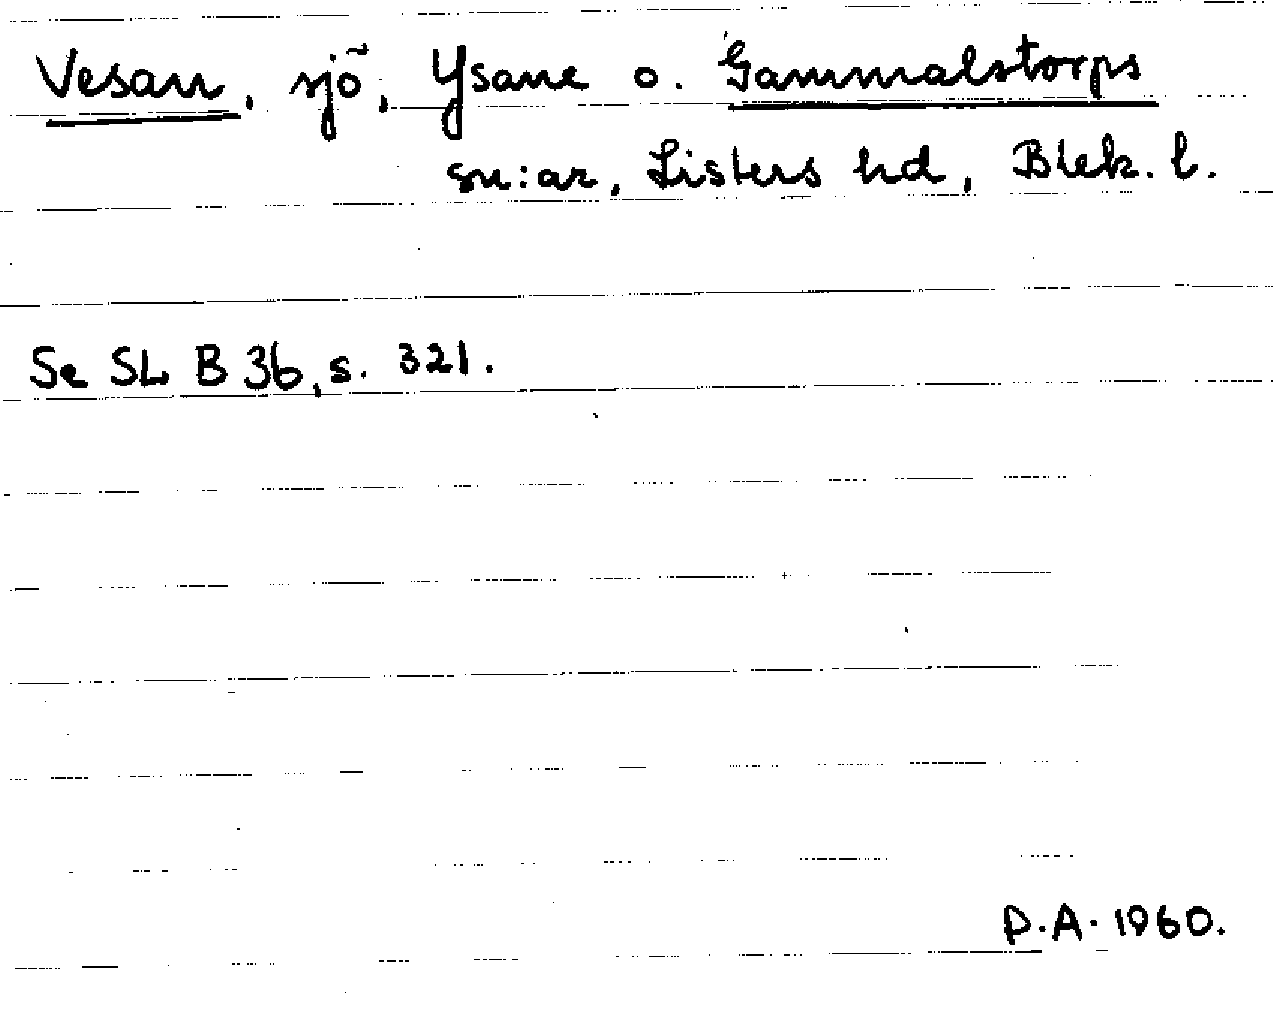 Vesan, sjö, Ysane o. Gammalstorps
sn:ar, Listers hd, Blek. l.
Se SL B 36, s. 321.
P.A. 1960.